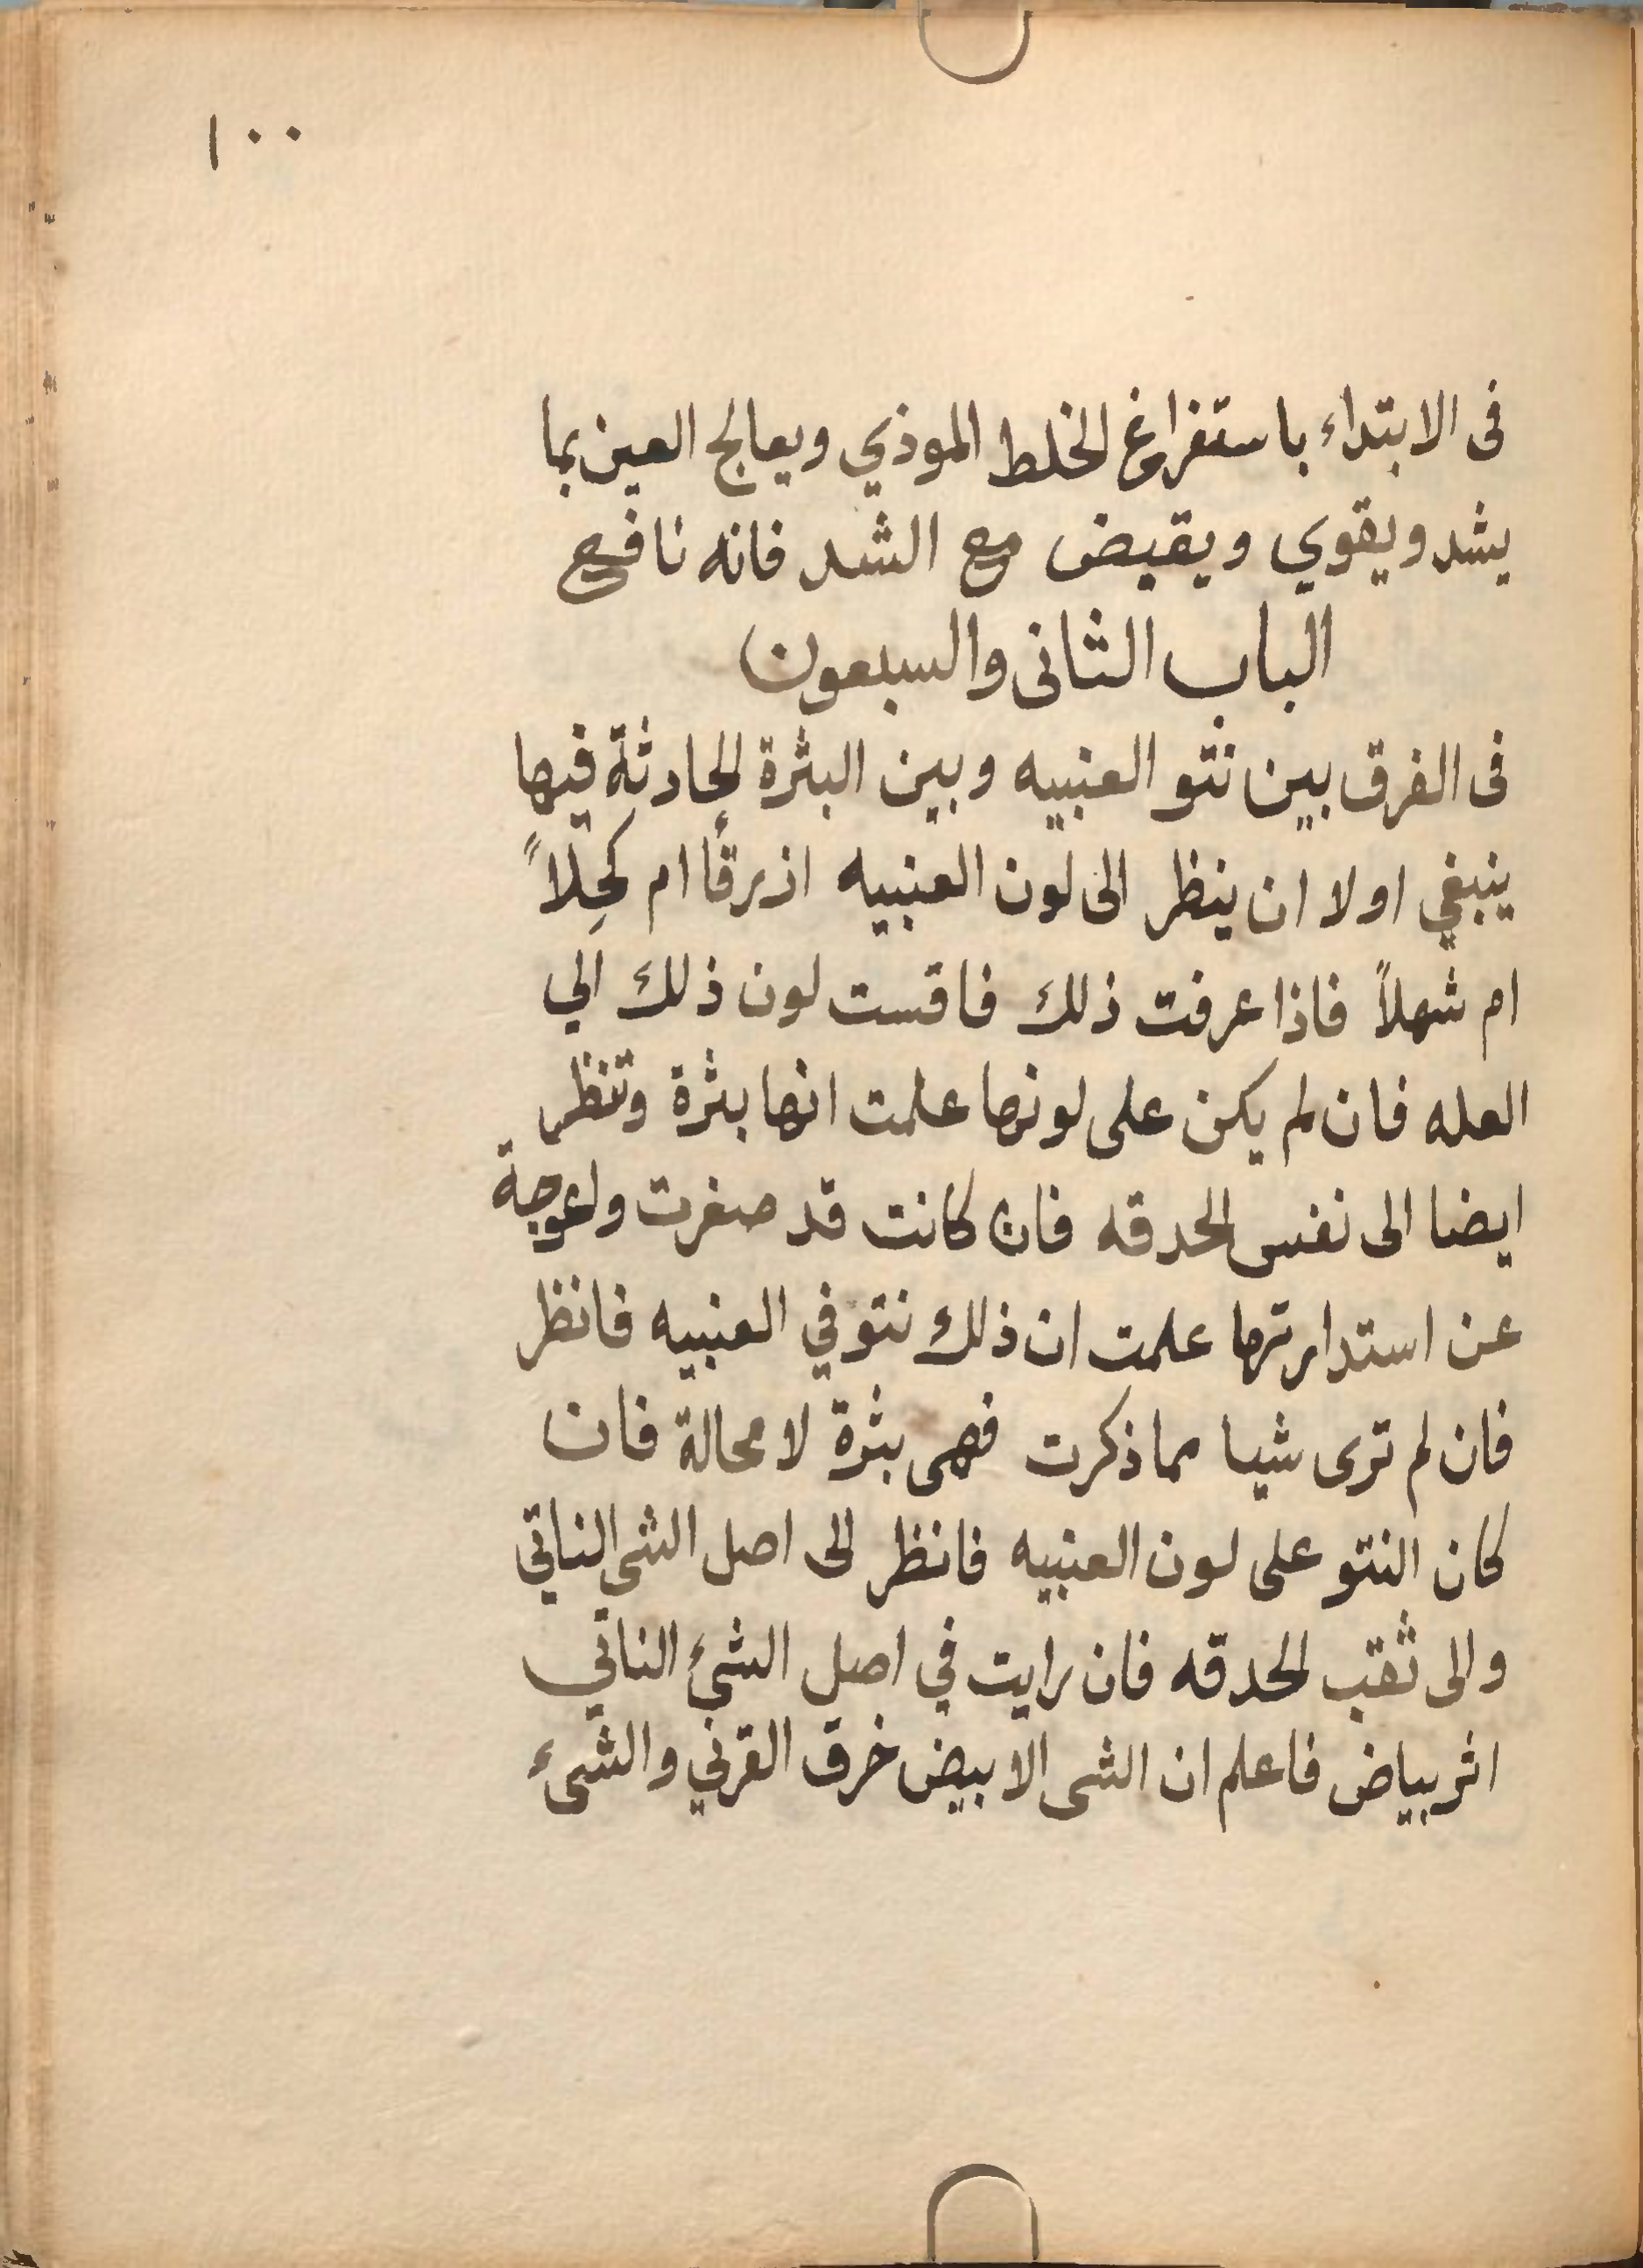 ١٠٠
فى الابتداء باستفراغ الخلط الموذي ويعالج العين بما
يشد ويقوي ويقبض مع الشد فانه نافع
الباب الثانى والسبعون
فى الفرق بين نتو العنبيه وبين البثرة الحادثة فيها
ينبغي اولا ان ينظر الى لون العنبيه ازرقًا ام كحِلاً
ام شهلاً فاذا عرفت ذلك فاقست لون ذلك الي
العله فان لم يكن على لونها علمت انها بثرة وتنظر
ايضا الى نفس الحدقه فان كانت قد صغرت واعوجة
عن استدارتها علمت ان ذلك نتو في العنبيه فانظر
فان لم ترى شيا مما ذكرت فهى بثرة لا محالة فان
كان النتو على لون العنبيه فانظر الى اصل الشى الناتي
والى ثقب الحدقه فان رايت في اصل الشيء الناتي
اثر بياض فاعلم ان الشى الابيض خرق القرني والشىء